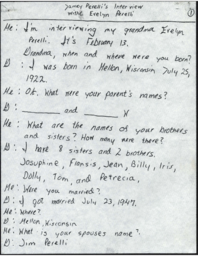 Jamey Perelli's Interview
with Evelyn Perelli
①
Me: I'm interviewing my grandma Evelyn
Perelli. It's February 13.
Grandma, when and where were you born?
G: I was born in Mellen, Wisconsin July 25,
1922.
Me: Ok. What were your parent's names?
G: ______ and ______
Me: What are the names of your brothers
and sisters? How many were there?
G: I have 8 sisters and 2 brothers.
Josuphine, Jean, Billy, Iris,
Dolly, Tom, and Petrecia.
Me: Were you married?
G: I got married July 23, 1947.
Me: Where?
G: Mellen, Wisconsin
Me: What is your spouses name?
G: Jim Perelli